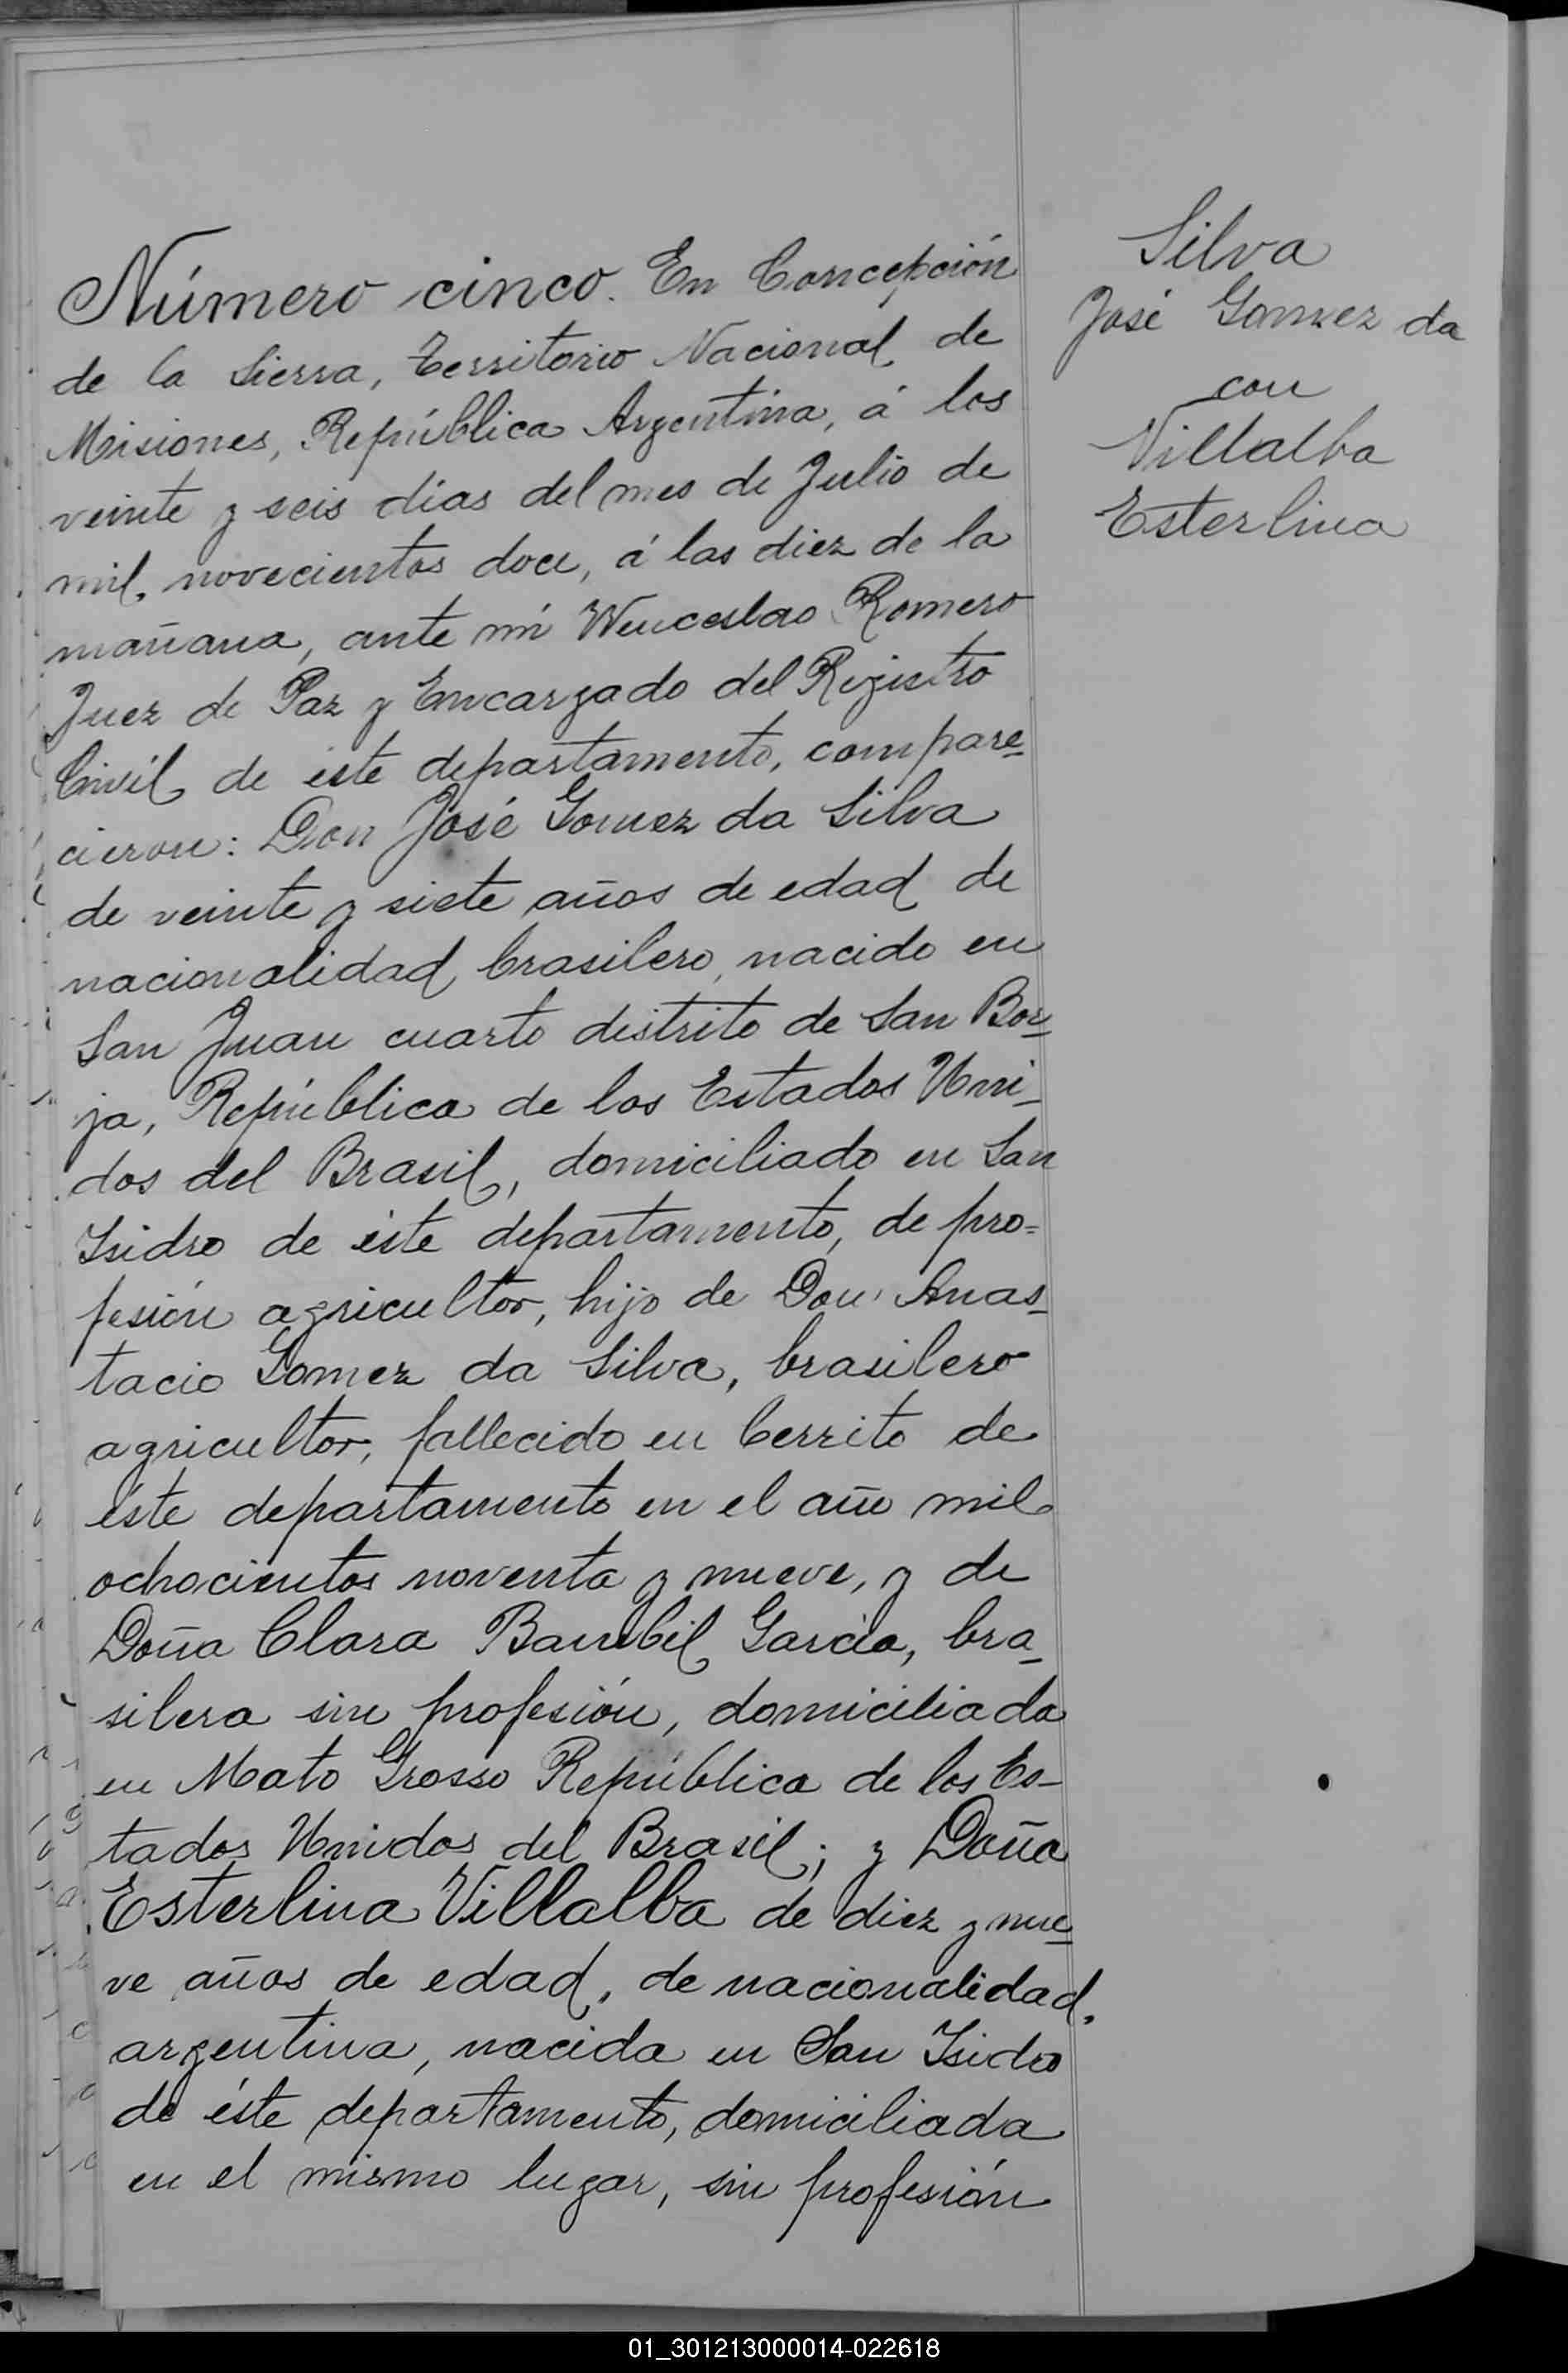 Número cinco. En Concepción
de la Sierra, Territorio Nacional de
Misiones, República Argentina, á los
veinte y seis días del mes de Julio de
mil novecientos doce, á las diez de la
mañana, ante mí Wenceslao Romero
Juez de Paz y Encargado del Registro
Civil de éste departamento, compare-
cieron: Don José Gomez da Silva
de veinte y siete años de edad de
nacionalidad brasilero, nacido en
San Juan cuarto distrito de San Bor-
ja, República de los Estados Uni-
dos del Brasil, domiciliado en San
Isidro de éste departamento, de pro-
fesión agricultor, hijo de Don Anas-
tacio Gomez da Silva, brasilero
agricultor, fallecido en Cerrito de
éste departamento en el año mil
ochocientos noventa y nueve, y de
Doña Clara Bambil Garcia, bra-
silera sin profesión, domiciliada
en Mato Grosso República de los Es-
tados Unidos del Brasil; y Doña
Esterlina Villalba de diez y nue-
ve años de edad, de nacionalidad
argentina, nacida en San Isidro
de éste departamento, domiciliada
en el mismo lugar, sin profesión
Silva
José Gomez da
con
Villalba
Esterlina
01_301213000014-022618